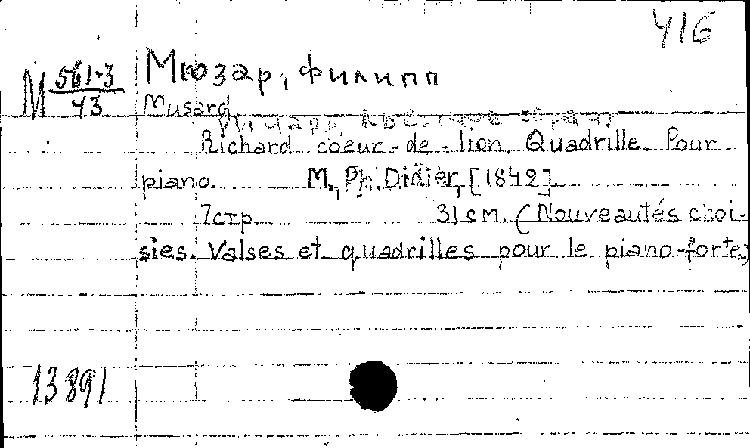 416
М 561-3
43
Мюзар, Филипп
Musard
Richard coeur-de-lion. Quadrille. Pour
piano. M., Ph. Didier, [1842]
7стр. 31см. (Nouveautés choi-
sies. Valses et quadrilles pour le piano-forte)
13891